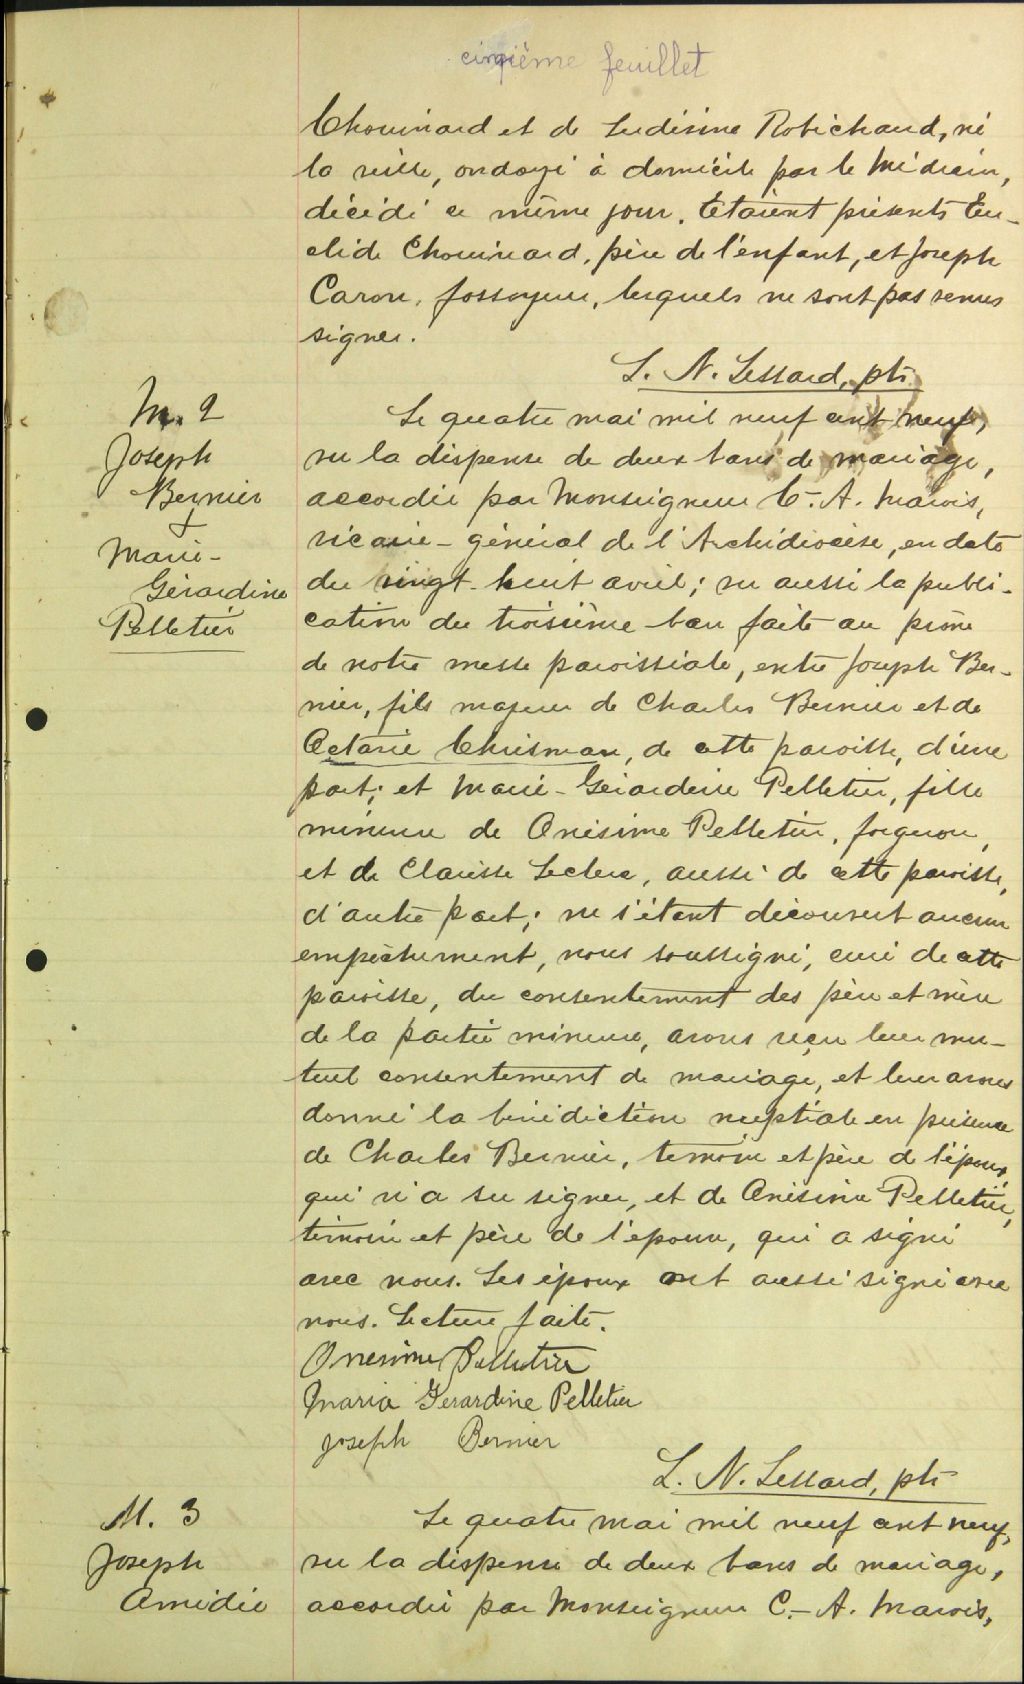 cinqième feuillet
Chouinard et de Ludivine Robichaud, né
la veille, ondoyé à domicile par le Médecin,
décédé ce même jour. Etaient présents Eu-
clide Chouinard, père de l'enfant, et Joseph
Caron, fossoyeur, lesquels ne sont pas venus
signer.
L. N. Lessard, ptr
M. 2
Joseph
Bernier
+
Marie-
Gérardine
Pelletier
Le quatre mai mil neuf cent neuf,
vu la dispense de deux bans de mariage,
accordée par Monseigneur C.-A. Marois,
vicaire-général de l'Archidiocèse, en date
du vingt-huit avril; vu aussi la publi-
cation du troisième ban faite au prône
de notre messe paroissiale, entre Joseph Ber-
nier, fils majeur de Charles Bernier et de
Octavie Chrisman, de cette paroisse, d'une
part; et Marie-Gérardine Pelletier, fille
mineure de Onésime Pelletier, forgeron,
et de Clarisse Leclerc, aussi de cette paroisse,
d'autre part; ne s'étant découvert aucun
empêchement, nous soussigné, curé de cette
paroisse, du consentement des père et mère
de la partie mineure, avons reçu leur mu-
tuel consentement de mariage, et leur avons
donné la bénédiction nuptiale en présence
de Charles Bernier, témoin et père de l'époux,
qui n'a su signer, et de Onésime Pelletier,
témoin et père de l'épouse, qui a signé
avec nous. Les époux ont aussi signé avec
nous. Lecture faite.
Onesime Pelletier
Maria Gerardine Pelletier
Joseph Bernier
L. N. Lessard, ptr
M. 3
Joseph
Amédée
Le quatre mai mil neuf cent neuf,
vu la dispense de deux bans de mariage,
accordée par Monseigneur C.-A. Marois,